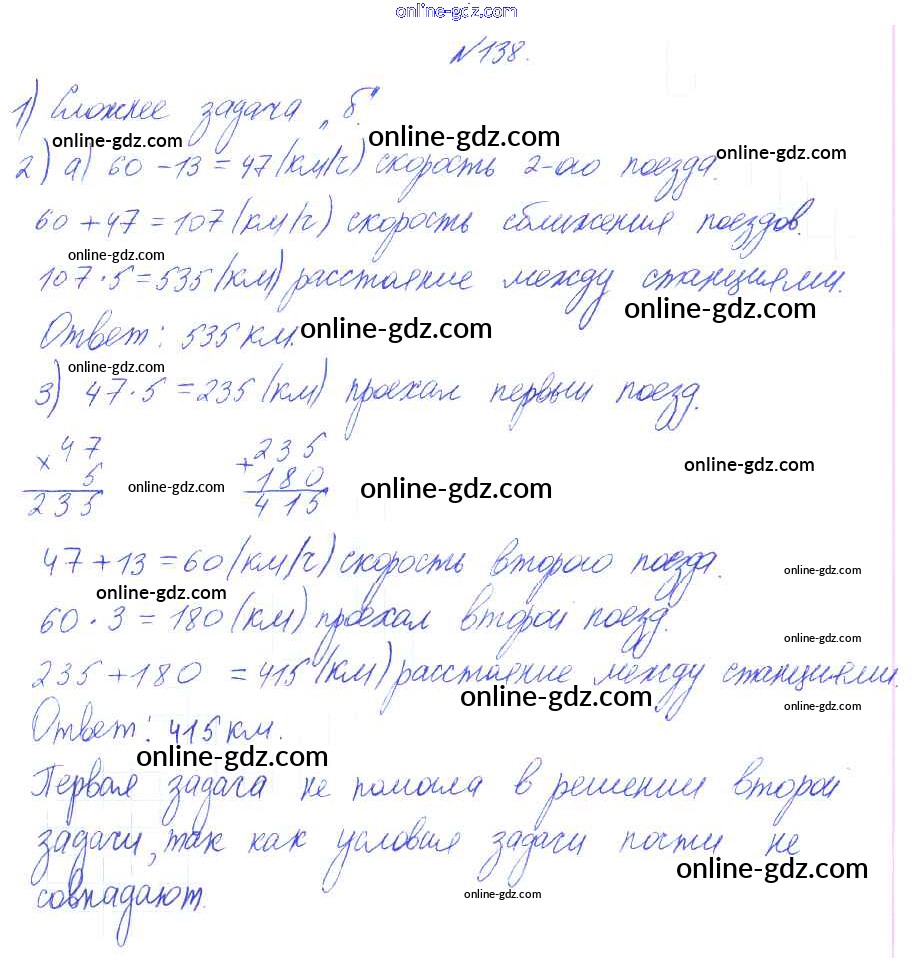 online-gdz.com
№138.
1) Сложнее задача „б".
online-gdz.com online-gdz.com online-gdz.com
2) а) 60 - 13 = 47 (км/ч) скорость 2-ого поезда.
60 + 47 = 107 (км/ч) скорость сближения поездов.
online-gdz.com
107 · 5 = 535 (км) расстояние между станциями.
online-gdz.com
Ответ: 535 км. online-gdz.com
online-gdz.com
3) 47 · 5 = 235 (км) проехал первый поезд.
× 47 + 235
5 180 online-gdz.com
235 415 online-gdz.com online-gdz.com
47 + 13 = 60 (км/ч) скорость второго поезда.
online-gdz.com online-gdz.com
60 · 3 = 180 (км) проехал второй поезд.
online-gdz.com
235 + 180 = 415 (км) расстояние между станциями.
online-gdz.com online-gdz.com
Ответ: 415 км.
online-gdz.com
Первая задача не помогла в решении второй
задачи, так как условия задачи почти не
online-gdz.com
совпадают. online-gdz.com